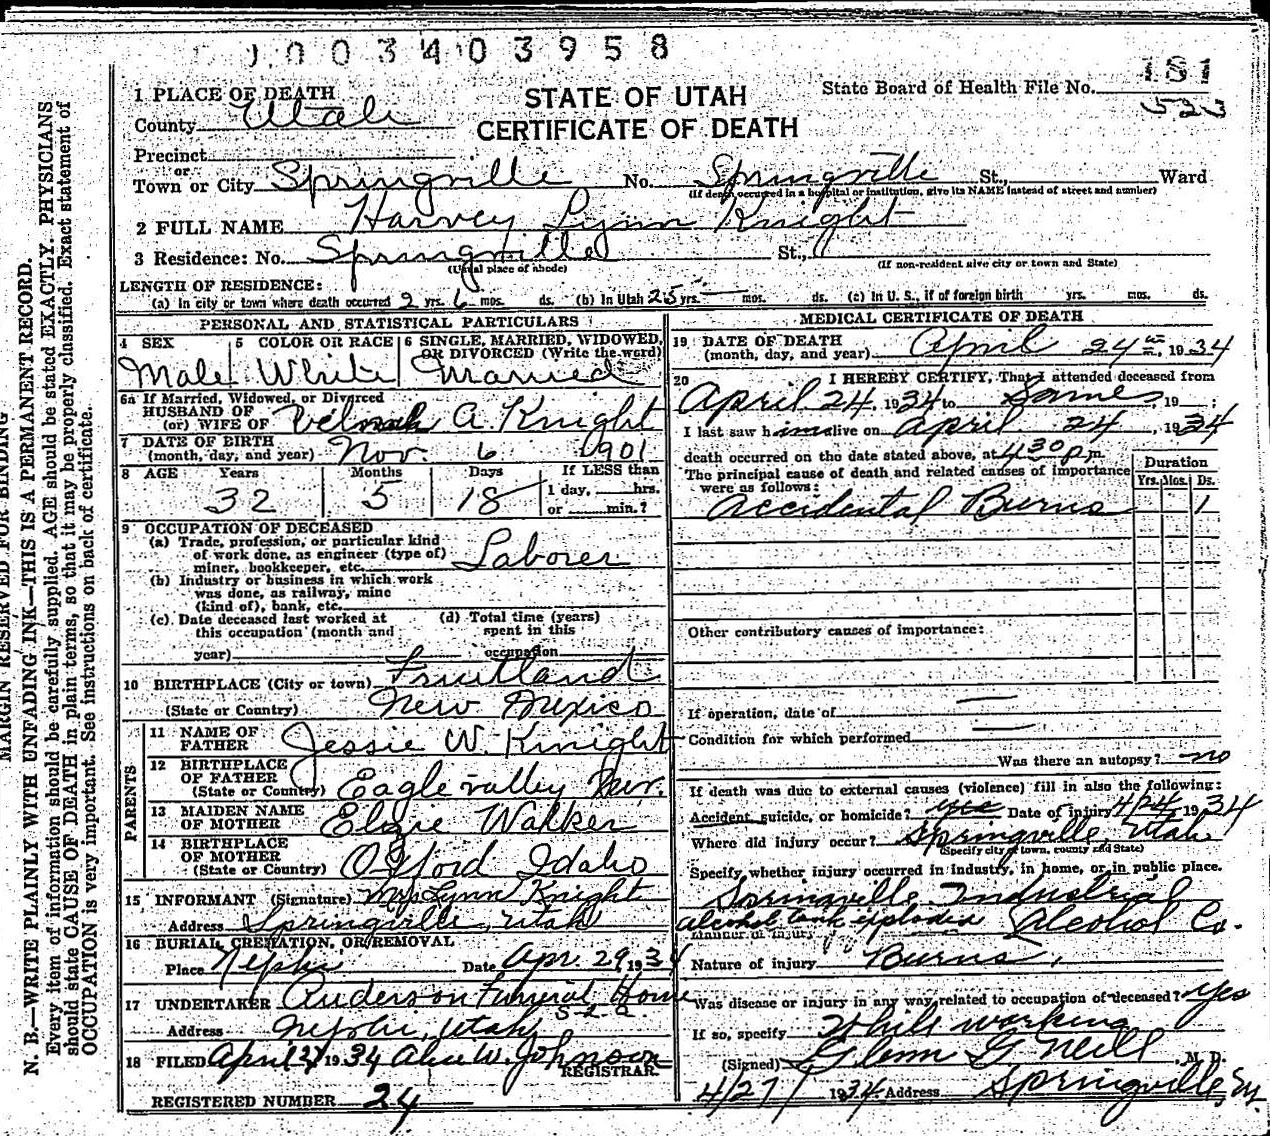 1003403958
STATE OF UTAH
CERTIFICATE OF DEATH
State Board of Health File No. 181
523
1 PLACE OF DEATH
County Utah
Precinct
or
Town or City Springville No. Springville St., Ward
(If death occurred in a hospital or institution, give its NAME instead of street and number)
2 FULL NAME Harvey Lynn Knight
3 Residence: No. Springville St.,
(Usual place of abode) (If non-resident give city or town and State)
LENGTH OF RESIDENCE:
(a) In city or town where death occurred 2 yrs. 6 mos. ds. (b) In Utah 25 yrs. — mos. ds. (c) In U. S., if of foreign birth yrs. mos. ds.
PERSONAL AND STATISTICAL PARTICULARS
4 SEX Male
5 COLOR OR RACE White
6 SINGLE, MARRIED, WIDOWED, OR DIVORCED (Write the word) Married
6a If Married, Widowed, or Divorced
HUSBAND OF
(or) WIFE OF A. Knight
7 DATE OF BIRTH
(month, day, and year) Nov. 6 1901
8 AGE Years Months Days If LESS than
32 5 18 1 day, hrs.
or min.?
9 OCCUPATION OF DECEASED
(a) Trade, profession, or particular kind
of work done, as engineer (type of)
miner, bookkeeper, etc. Laborer
(b) Industry or business in which work
was done, as railway, mine
(kind of), bank, etc.
(c) Date deceased last worked at
this occupation (month and
year)
(d) Total time (years)
spent in this
occupation
10 BIRTHPLACE (City or town) Fruitland
(State or Country) New Mexico
PARENTS
11 NAME OF
FATHER Jessie W. Knight
12 BIRTHPLACE
OF FATHER
(State or Country) Eagle valley Nev.
13 MAIDEN NAME
OF MOTHER Elzie Walker
14 BIRTHPLACE
OF MOTHER
(State or Country) Oxford Idaho
15 INFORMANT (Signature) Mrs Lynn Knight
Address Springville, Utah
16 BURIAL, CREMATION, OR REMOVAL
Place Nephi Date Apr. 29 1934
17 UNDERTAKER Anderson Funeral Home
Address Nephi, Utah
18 FILED April 1934 Alice W. Johnson
REGISTRAR.
REGISTERED NUMBER 24
MEDICAL CERTIFICATE OF DEATH
19 DATE OF DEATH
(month, day, and year) April 24th, 1934
20 I HEREBY CERTIFY, That I attended deceased from
April 24, 1934 to Same, 19 ;
I last saw him alive on April 24, 1934
death occurred on the date stated above, at 430 p.m.
The principal cause of death and related causes of importance
were as follows:
Duration
Yrs. Mos. Ds.
Accidental Burns 1
Other contributory causes of importance:
If operation, date of —
Condition for which performed —
Was there an autopsy? no
If death was due to external causes (violence) fill in also the following:
Accident, suicide, or homicide? yes Date of injury 4/24 1934
Where did injury occur? Springville Utah
(Specify city or town, county and State)
Specify whether injury occurred in industry, in home, or in public place.
Springville Industrial
alcohol tank exploded Alcohol Co.
Manner of injury
Nature of injury Burns.
Was disease or injury in any way related to occupation of deceased? Yes
If so, specify While working
(Signed) Glenn G Neill, M. D.
4/27 1934 Address Springville,
MARGIN RESERVED FOR BINDING
N. B.—WRITE PLAINLY WITH UNFADING INK—THIS IS A PERMANENT RECORD.
Every item of information should be carefully supplied. AGE should be stated EXACTLY. PHYSICIANS
should state CAUSE OF DEATH in plain terms, so that it may be properly classified. Exact statement of
OCCUPATION is very important. See instructions on back of certificate.